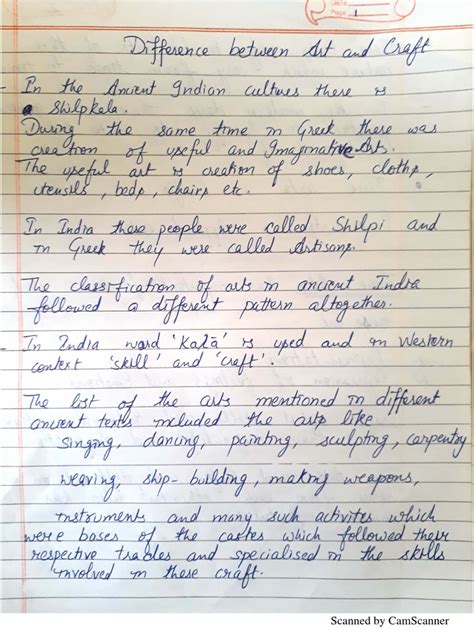 Date
Page
Difference between Art and Craft
- In the Ancient Indian cultures there is
a Shilpkala.
During the same time in Greek there was
creation of useful and Imaginative Arts.
The useful art is creation of shoes, cloths,
utensils, beds, chairs etc.
In India these people were called Shilpi and
in Greek they were called Artisans.
The classification of arts in ancient India
followed a different pattern altogether.
- In India word 'Kalā' is used and in Western
context 'skill' and 'craft'.
The list of the arts mentioned in different
ancient texts included the arts like
singing, dancing, painting, sculpting, carpentry
weaving, ship-building, making weapons,
instruments and many such activites which
were bases of the castes which followed their
respective trades and specialised in the skills
involved in these craft.
Scanned by CamScanner